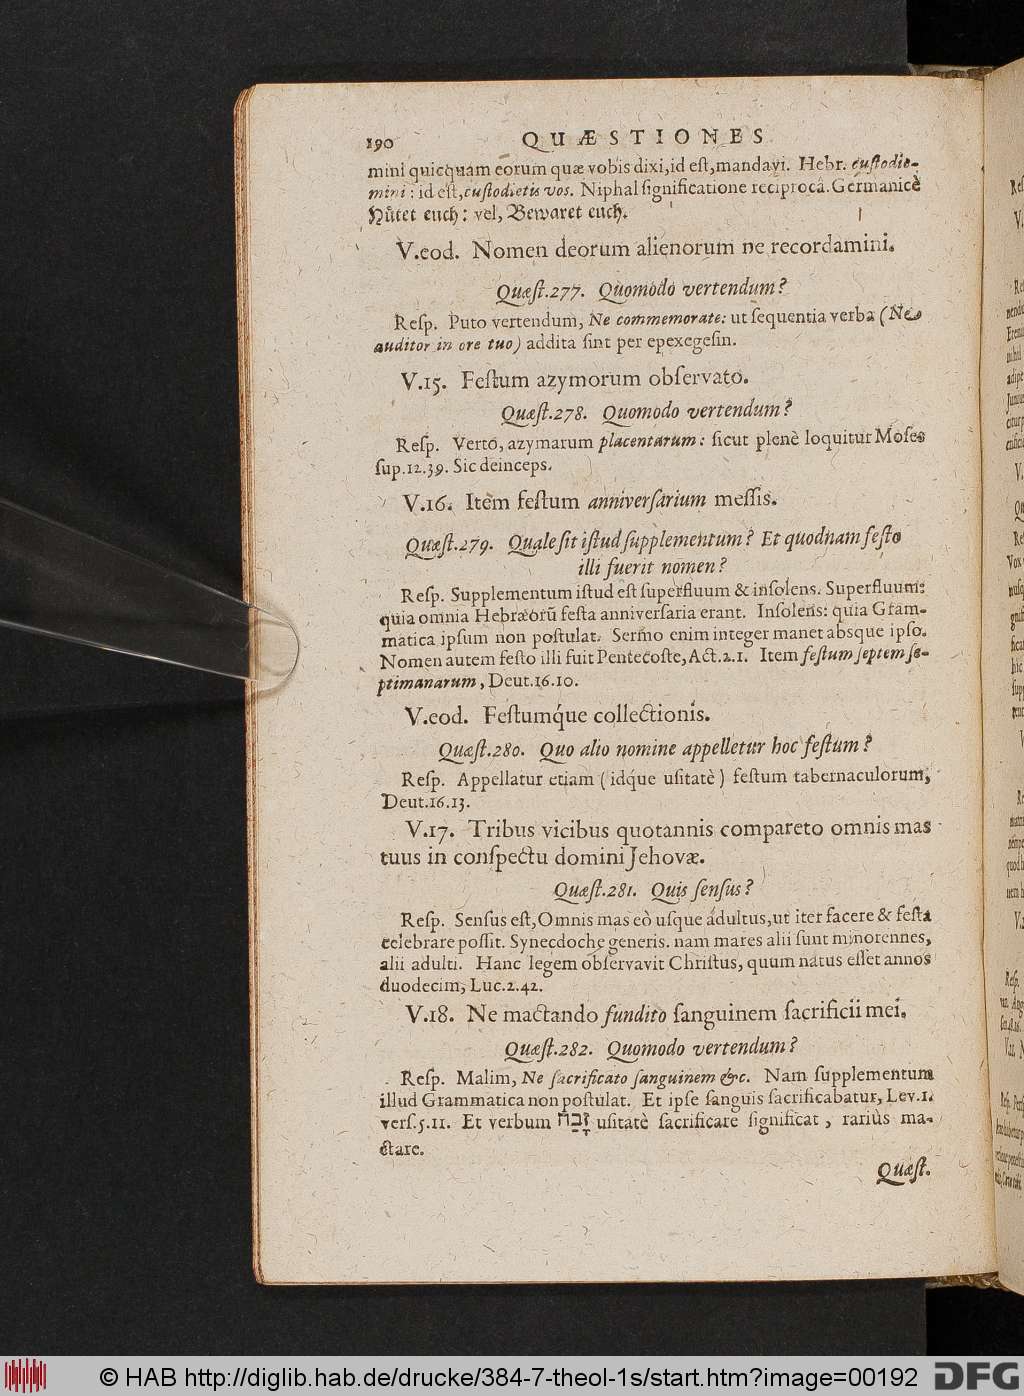 190 QUÆSTIONES
mini quicquam eorum quæ vobis dixi, id eſt, mandavi. Hebr. cuſtodie-
mini: id eſt, cuſtodietis vos. Niphal ſignificatione reciprocâ. Germanicè
Hütet euch: vel, Bewaret euch.
V.eod. Nomen deorum alienorum ne recordamini.
Quæſt.277. Quomodo vertendum?
Reſp. Puto vertendum, Ne commemorate: ut ſequentia verba (Ne
auditor in ore tuo) addita ſint per epexegeſin.
V.15. Feſtum azymorum obſervato.
Quæſt.278. Quomodo vertendum?
Reſp. Verto, azymarum placentarum: ſicut plenè loquitur Moſes
ſup.12.39. Sic deinceps.
V.16. Item feſtum anniverſarium meſſis.
Quæſt.279. Quale ſit iſtud ſupplementum? Et quodnam feſto
illi fuerit nomen?
Reſp. Supplementum iſtud eſt ſuperfluum & inſolens. Superfluum:
quia omnia Hebræorũ feſta anniverſaria erant. Inſolens: quia Gram-
matica ipſum non poſtulat. Sermo enim integer manet absque ipſo.
Nomen autem feſto illi fuit Pentecoſte, Act.2.1. Item feſtum ſeptem ſe-
ptimanarum, Deut.16.10.
V.eod. Feſtumq́ue collectionis.
Quæſt.280. Quo alio nomine appelletur hoc feſtum?
Reſp. Appellatur etiam (idq́ue uſitatè) feſtum tabernaculorum,
Deut.16.13.
V.17. Tribus vicibus quotannis compareto omnis mas
tuus in conſpectu domini Jehovæ.
Quæſt.281. Quis ſenſus?
Reſp. Senſus eſt, Omnis mas eò uſque adultus, ut iter facere & feſta
celebrare poſſit. Synecdoche generis. nam mares alii ſunt minorennes,
alii adulti. Hanc legem obſervavit Chriſtus, quum natus eſſet annos
duodecim, Luc.2.42.
V.18. Ne mactando fundito ſanguinem ſacrificii mei.
Quæſt.282. Quomodo vertendum?
Reſp. Malim, Ne ſacrificato ſanguinem &c. Nam ſupplementum
illud Grammatica non poſtulat. Et ipſe ſanguis ſacrificabatur, Lev.1.
verſ.5.11. Et verbum זָבַח uſitatè ſacrificare ſignificat, rariùs ma-
ctare.
Quæſt.
© HAB http://diglib.hab.de/drucke/384-7-theol-1s/start.htm?image=00192
DFG